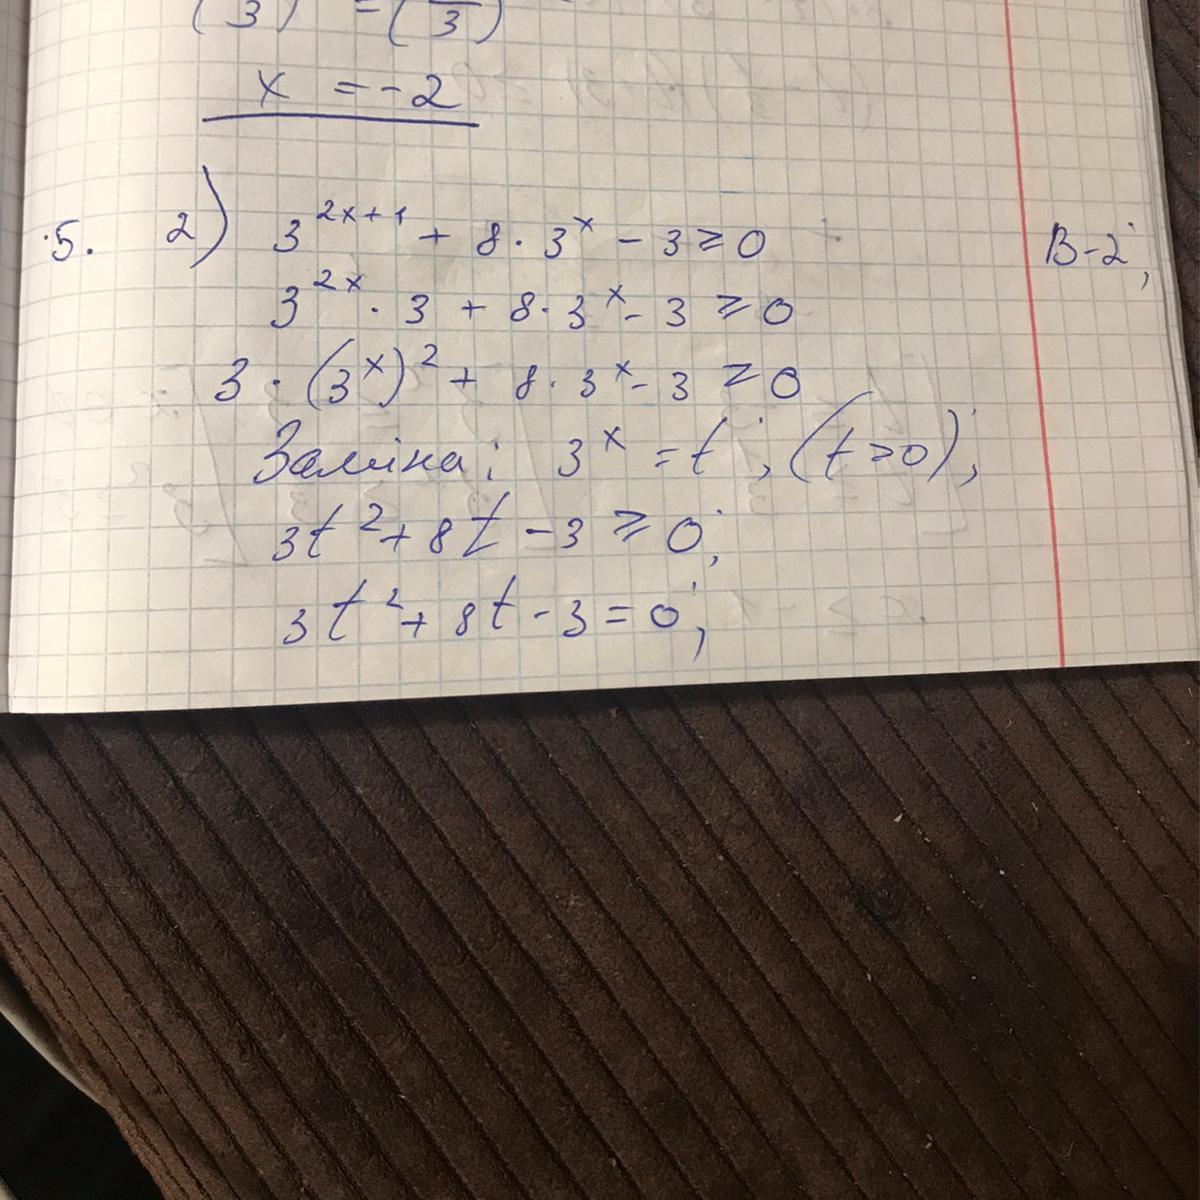 (3) = (/3)
x = -2
5. 2) 3^{2x+1} + 8 · 3^x - 3 ≥ 0 В-2;
3^{2x} · 3 + 8 · 3^x - 3 ≥ 0
3 · (3^x)^2 + 8 · 3^x - 3 ≥ 0
Заміна: 3^x = t; (t>0);
3t^2 + 8t - 3 ≥ 0;
3t^2 + 8t - 3 = 0;